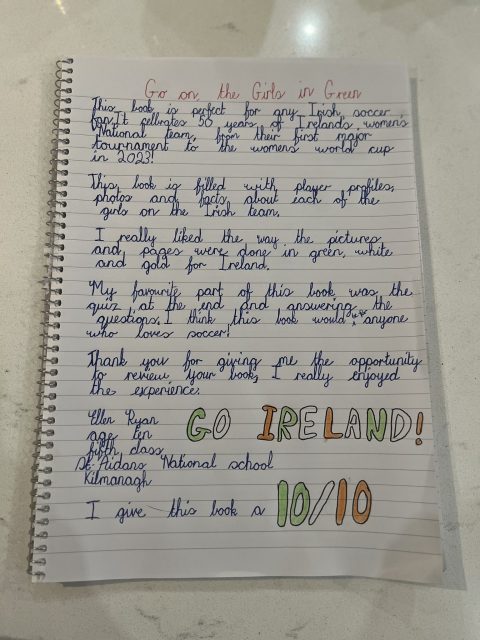 Go on, the Girls in Green
This book is perfect for any Irish soccer
fan. It cellrates 50 years of Ireland's women's
National team, from their first major
tournament to the womens world cup
in 2023!
This book is filled with player profiles,
photos and facts about each of the
girls on the Irish team.
I really liked the way the pictures
and pages were done in green, white
and gold for Ireland.
My favourite part of this book was the
quiz at the end and answering the
questions. I think this book would anyone
who loves soccer!
Thank you for giving me the opportunity
to review your book, I really enjoyed
the experience.
Ellen Ryan
age ten
fifth class
GO IRELAND!
St. Aidans National school
Kilmanagh
I give this book a 10/10